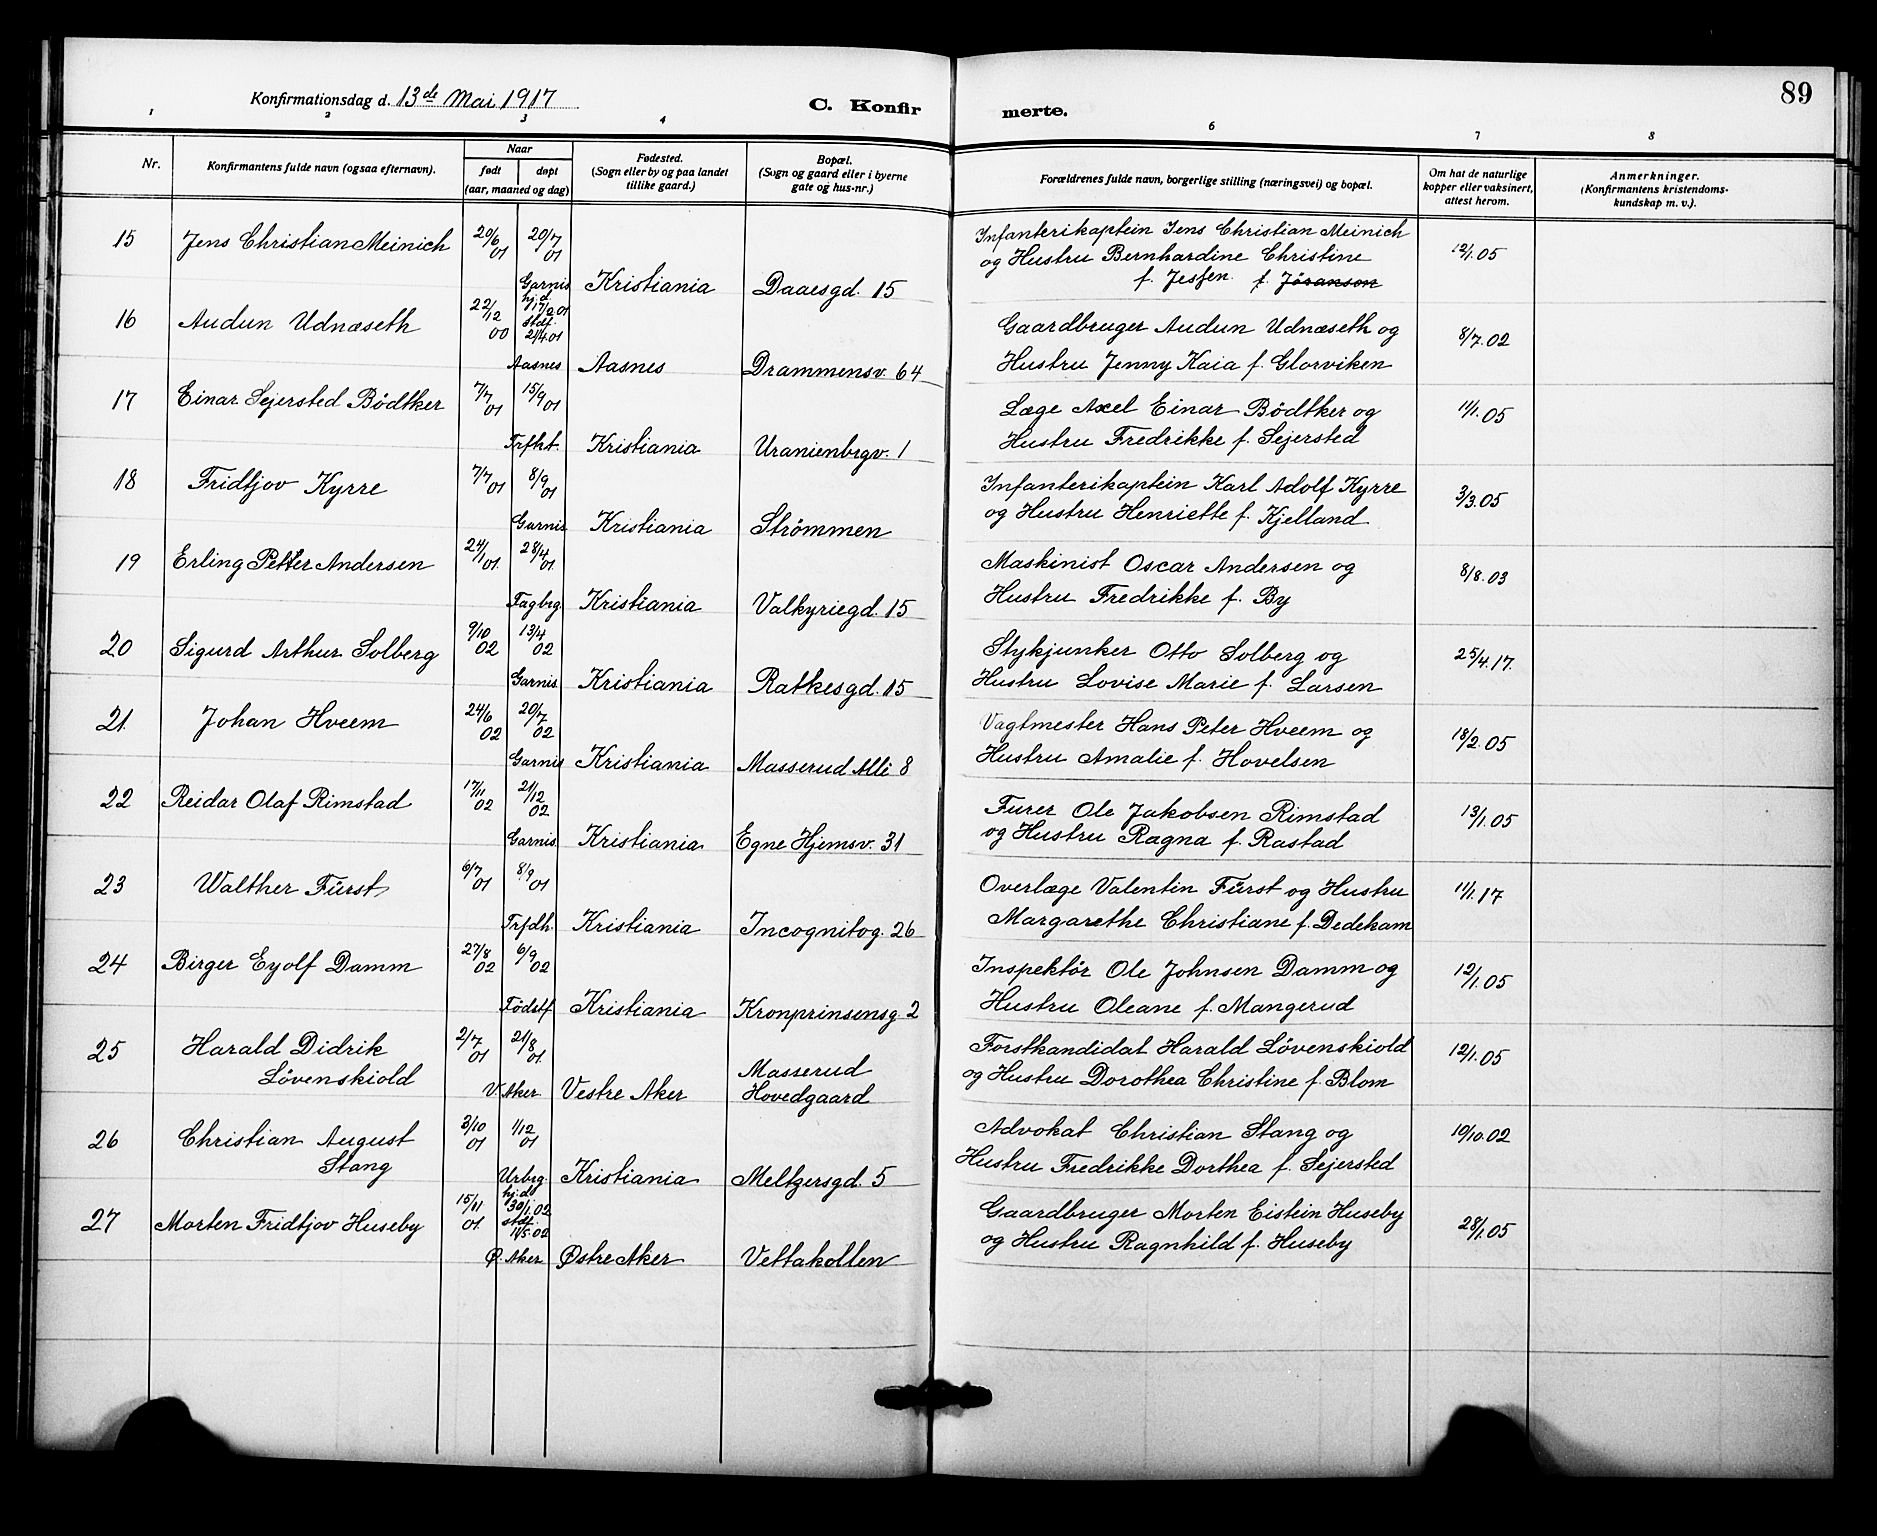 89
Konfirmationsdag d. 13de Mai 1917
C. Konfirmerte.
1 2 3 4 6 7 8
Nr.
Konfirmantens fulde navn (ogsaa efternavn).
Naar
født døpt
(aar, maaned og dag)
Fødested.
(Sogn eller by og paa landet
tillike gaard.)
Bopæl.
(Sogn og gaard eller i byerne
gate og hus-nr.)
Forældrenes fulde navn, borgerlige stilling (næringsvei) og bopæl.
Om hat de naturlige
kopper eller vaksinert,
attest herom.
Anmerkninger.
(Konfirmantens kristendoms-
kundskap m. v.).
15 Jens Christian Meinich 20/6 01 20/7 01 Infanterikaptein Jens Christian Meinich 12/1.05
og Hustru Bernhardine Christine
Garnis Kristiania Daaesgd. 15 f. Jessen f. Jöranson
16 Audun Udnæseth 22/12 00 hj.d. 17/2 01 stdf. 21/4 01 Gaardbruger Audun Udnæseth og 8/7.02
Aasnes Aasnes Drammensv. 64 Hustru Jenny Kaia f. Glorviken
17 Einar Sejersted Bödtker 7/7 01 15/9 01 Læge Axel Einar Bödtker og 11/1.05
Trfht. Kristiania Uranienbrgv. 1 Hustru Fredrikke f. Sejersted
18 Fridtjov Kyrre 7/7 01 8/9 01 Infanterikaptein Karl Adolf Kyrre 3/3.05
Garnis. Kristiania Strömmen og Hustru Henriette f. Kjelland
19 Erling Petter Andersen 24/1 01. 28/4 01. Maskinist Oscar Andersen og 8/8.03
Fagbrg. Kristiania Valkyriegd. 15 Hustru Fredrikke f. By
20 Sigurd Arthur Solberg 9/10 02 13/4 02 Stykjunker Otto Solberg og 25/4.17.
Garnis. Kristiania Ratkesgd. 15 Hustru Lovise Marie f. Larsen
21 Johan Hveem 24/6 02 20/7 02 Vagtmester Hans Peter Hveem og 18/2.05
Garnis Kristiania Masserud Alli 8 Hustru Amalie f. Hovelsen
22 Reidar Olaf Rimstad 17/11 02 21/12 02 Furer Ole Jakobsen Rimstad 13/1.05
Garnis. Kristiania Egne Hjemsv. 31 og Hustru Ragna f. Rastad
23 Walther Fürst 6/7 01 8/9 01 Overlæge Valentin Fürst og Hustru 11/1.17
Trfdh. Kristiania Incognitog. 26 Margarethe Christiane f. Dedekam
24 Birger Eyolf Damm 27/8 02 6/9 02 Inspektör Ole Johnsen Damm og 12/1.05
Födstf. Kristiania Kronprinsensg. 2 Hustru Oleane f. Mangerud
25 Harald Didrik 2/7 01 21/8 01. Forstkandidat Harald Lövenskiold 12/1.05
Lövenskiold Masserud og Hustru Dorothea Christine f. Blom
V. Aker. Vestre Aker Hovedgaard
26 Christian August 3/10 01 1/12 01 Advokat Christian Stang og 10/10.02
Stang Urbrg. Kristiania Meltzersgd. 5 Hustru Fredrikke Dorthea f. Sejersted
27 Morten Fridtjov Huseby 15/11 01. hj.d 30/1.02 stdf. 11/5.02 Gaardbruger Morten Eistein Huseby 28/1.05
Ø. Aker Østre Aker Vettakollen og Hustru Ragnhild f. Huseby